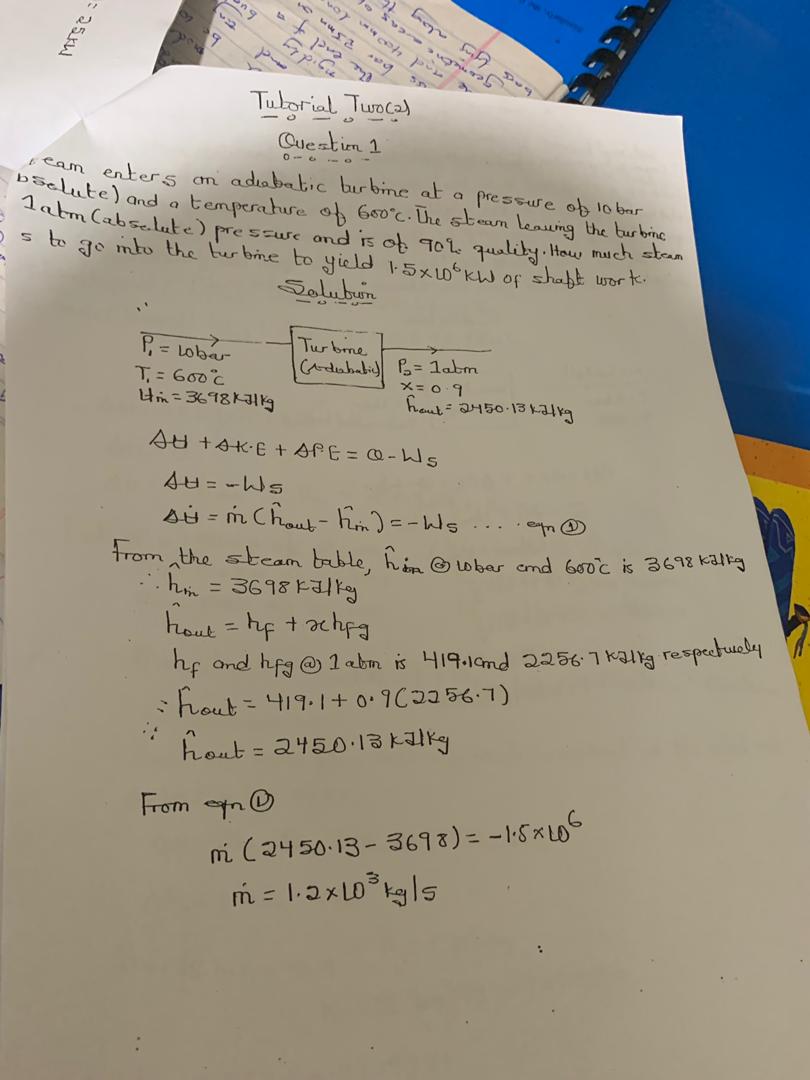 = 25KW
Tutorial Two(2)
Question 1
eam enters an adiabatic turbine at a pressure of 10 bar
bsolute) and a temperature of 600°c. The steam leaving the turbine
1atm (absolute) pressure and is of 90% quality. How much steam
s to go into the turbine to yield 1.5×10⁶ KW of shaft work.
Solution
P₁ = 10bar
T₁ = 600°c
Ĥin = 3698 KJ/kg
Turbine
(Adiabatic)
P₂ = 1atm
x = 0.9
ĥout = 2450.13 KJ/kg
ΔH + ΔK.E + ΔP.E = Q - Ws
ΔH = -Ws
ΔḢ = ṁ (ĥout - ĥin) = -Ws .... eqn ①
From the steam table, ĥin @ 10bar and 600°c is 3698 KJ/kg
∴ ĥin = 3698 KJ/kg
ĥout = hf + xhfg
hf and hfg @ 1 atm is 419.1 and 2256.7 KJ/kg respectively
∴ ĥout = 419.1 + 0.9(2256.7)
∴ ĥout = 2450.13 KJ/kg
From eqn ①
ṁ (2450.13 - 3698) = -1.5×10⁶
ṁ = 1.2×10³ kg/s